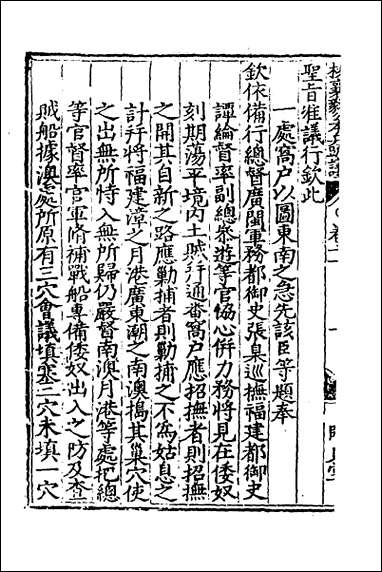 聖旨准議行欽此
一處窩户以圖東南之急先該臣等題奉
欽依備行總督廣閩軍務都御史張臬巡撫福建都御史
譚綸督率副總叅遊等官協心併力務將見在倭奴
刻期蕩平境内土賊行通番窩户應招撫者則招撫
之開其自新之路應勦捕者則勦捕之不為姑息之
計行將福建漳之月港廣東潮之南澳搗其巢穴使
之出無所恃入無所歸仍嚴督南澳月港等處把總
等官督率官軍脩補戰船專備倭奴出入之防及查
賊船據澳處所原有三穴會議填塞二穴未填一穴